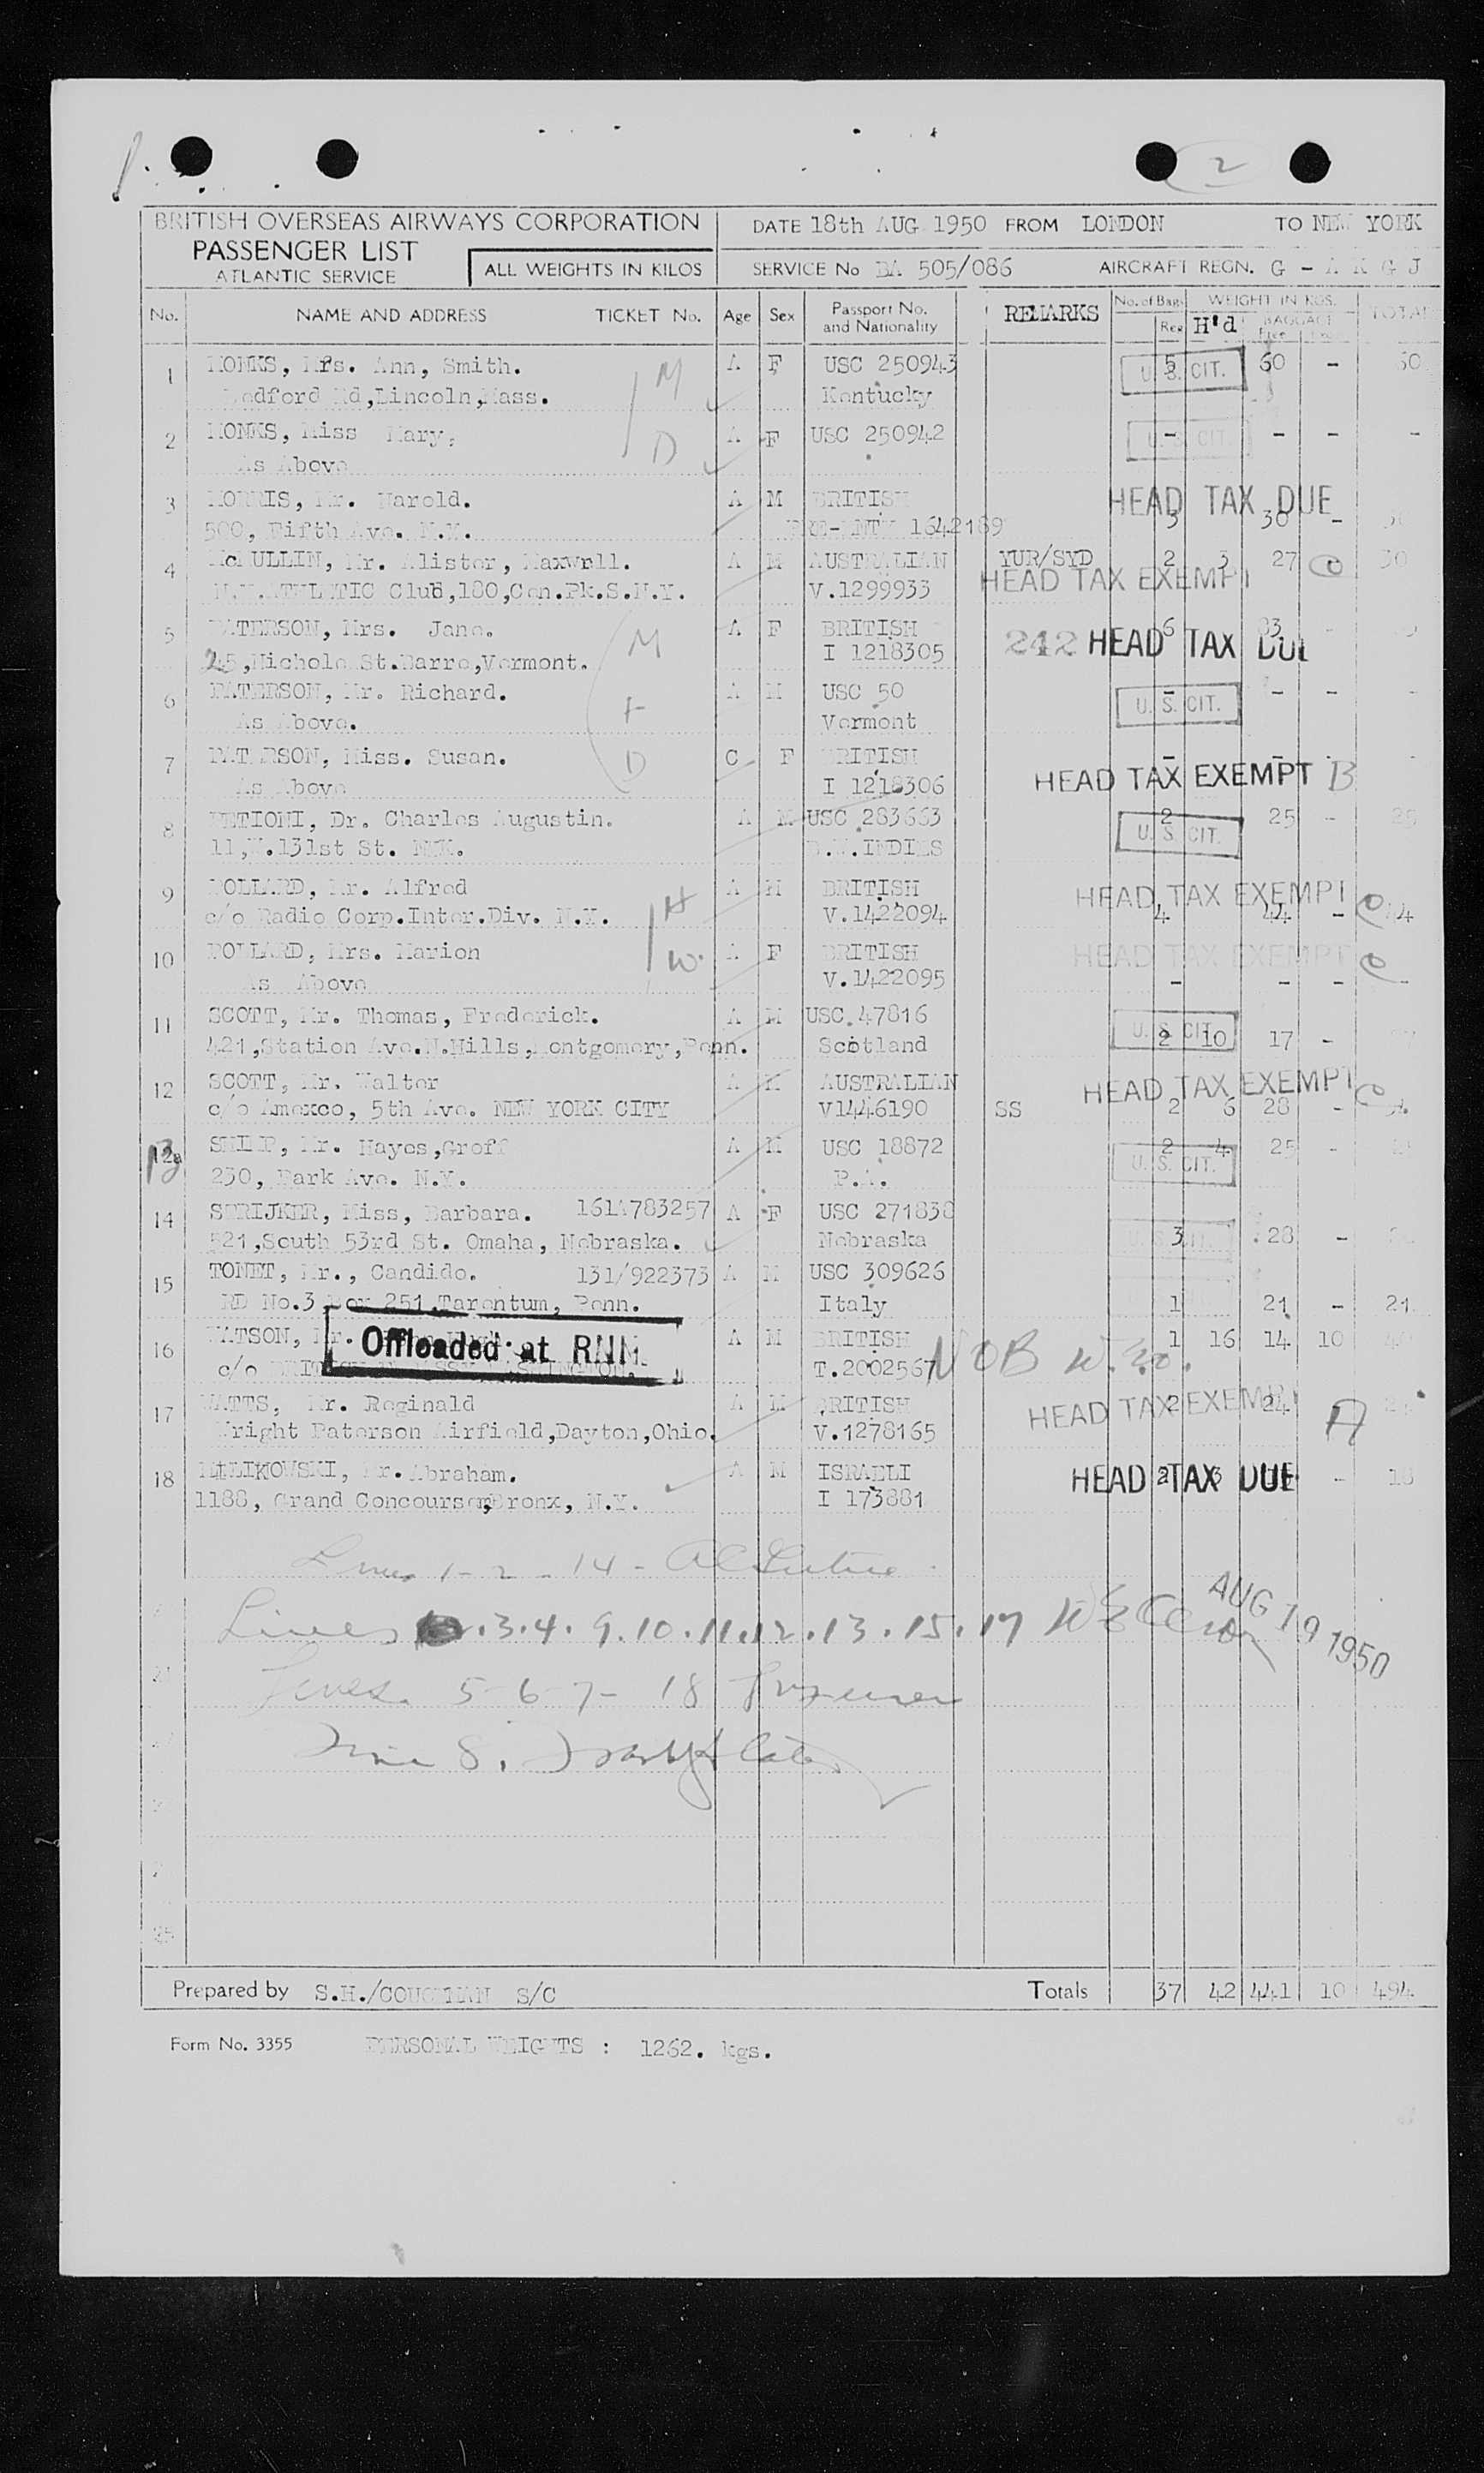 2
BRITISH OVERSEAS AIRWAYS CORPORATION DATE 18th AUG 1950 FROM LONDON TO NEW YORK
PASSENGER LIST
ATLANTIC SERVICE ALL WEIGHTS IN KILOS SERVICE No BA 505/086 AIRCRAFT REGN. G - A K G J
No. NAME AND ADDRESS TICKET No. Age Sex Passport No. and Nationality REMARKS No. of Bags Reg H'd WEIGHT IN KGS. BAGGAGE Free TOTAL
1 MONKS, Mrs. Ann, Smith. A F USC 250943 U. S. CIT. 5 60 - 60
Bedford Rd,Lincoln,Mass. Kentucky M
2 MONKS, Miss Mary, A F USC 250942 U. S. CIT. - - - -
As Above D
3 MORRIS, Mr. Harold. A M BRITISH HEAD TAX DUE
500, Fifth Ave. N.Y. 1642189 3 30 -
4 McMULLIN, Mr. Alister, Maxwell. A M AUSTRALIAN YUR/SYD 2 3 27 30
N.Y.ATHLETIC Club,180,Cen.Pk.S.N.Y. V.1299933 HEAD TAX EXEMPT
5 PATERSON, Mrs. Jane. A F BRITISH 6 83 -
25,Nichole St.Barre,Vermont. M I 1218305 242 HEAD TAX DUE
6 PATERSON, Mr. Richard. A M USC 50 U. S. CIT. - - - -
As Above. Vermont
7 PATERSON, Miss. Susan. C F BRITISH - - -
As Above D I 1218306 HEAD TAX EXEMPT B
8 PETIONI, Dr. Charles Augustin. A M USC 283663 2 25 - 25
11,W.131st St. N.Y. B.W.INDIES U. S. CIT.
9 POLLARD, Mr. Alfred A M BRITISH HEAD TAX EXEMPT
c/o Radio Corp.Inter.Div. N.Y. H V.1422094 4 44 - 44
10 POLLARD, Mrs. Marion A F BRITISH HEAD TAX EXEMPT
As Above W. V.1422095 - - - -
11 SCOTT, Mr. Thomas, Frederick. A M USC.47816 U. S. CIT.
421,Station Ave.N.Hills,Montgomery,Penn. Scotland 2 10 17 -
12 SCOTT, Mr. Walter A M AUSTRALIAN HEAD TAX EXEMPT
c/o Amexco, 5th Ave. NEW YORK CITY V1446190 SS 2 6 28 -
12a 13 Mr. Hayes,Groff A M USC 18872 2 4 25 -
230, Park Ave. N.Y. P.A. U. S. CIT.
14 Miss, Barbara. 161A783257 A F USC 271838
521,South 53rd St. Omaha, Nebraska. Nebraska U. S. CIT. 3 28 -
15 TONET, Mr., Candido. 131/922373 A M USC 309626
RD No.3,Box 251,Tarentum, Penn. Italy 1 21 - 21
16 WATSON, Mr. Offloaded at RNN. A M BRITISH 1 16 14 10 40
c/o BRITISH EMBASSY WASHINGTON. T.2002567 NOB
17 WATTS, Mr. Reginald A M BRITISH 2 24
Wright Paterson Airfield,Dayton,Ohio. V.1278165 HEAD TAX EXEMPT A
18 MILIKOWSKI, Mr. Abraham. A M ISRAELI HEAD TAX DUE 2 3 - 18
1188, Grand Concourse,Bronx, N.Y. I 173881
Lines 1-2-14-
Lines .3.4.9.10.11.12.13.15.17
AUG 19 1950
Lines. 5-6-7-18
Line 8.
25
Prepared by S.H./COUGHLAN S/C Totals 37 42 441 10 494
Form No. 3355 PERSONAL WEIGHTS : 1262. kgs.